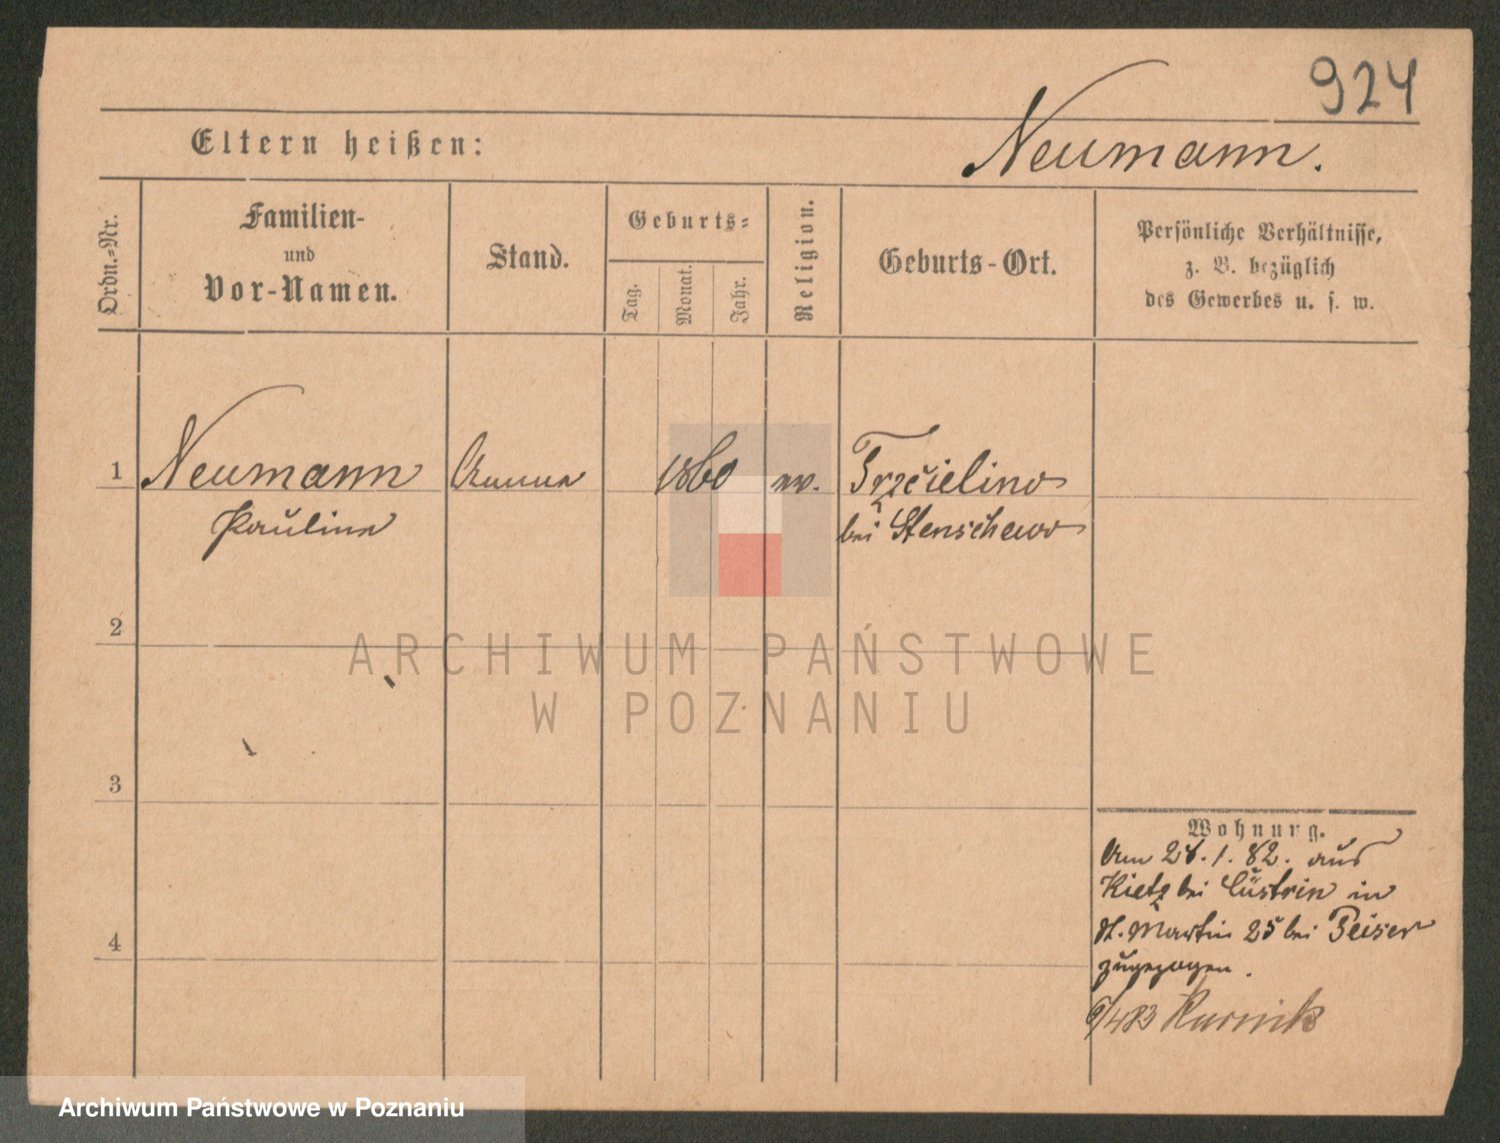 924
Eltern heißen:
Neumann.
Ordn.=Nr.
Familien-
und
Vor-Namen.
Stand.
Geburts=
Tag.
Monat.
Jahr.
Religion.
Geburts-Ort.
Persönliche Verhältnisse,
z. B. bezüglich
des Gewerbes u. s. w.
1
Neumann
Amme
1860
ev.
Trzcielino
Pauline
bei Stenschewo
2
ARCHIWUM PAŃSTWOWE
W POZNANIU
3
Wohnung.
Am 28. 1. 82. aus
Kietz bei Cüstrin in
St. Martin 25 bei Peiser
zugezogen.
4
Kurnik
Archiwum Państwowe w Poznaniu